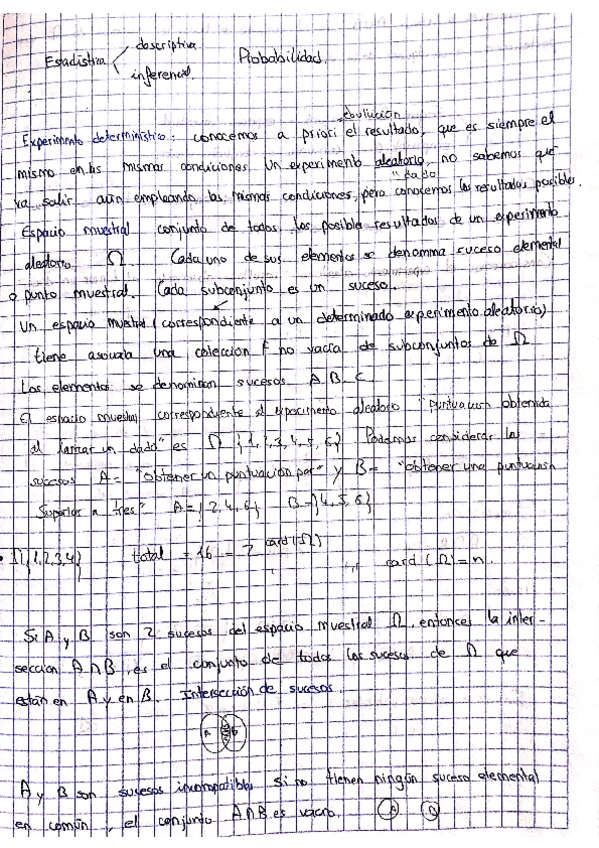 Estadística descriptiva
inferencial
Probabilidad.
ebullición
Experimento determinístico: conocemos a priori el resultado, que es siempre el
mismo en las mismas condiciones. Un experimento aleatorio, no sabemos que
"dado
va salir aún empleando las mismas condiciones, pero conocemos los resultados posibles.
Espacio muestral conjunto de todos los posible resultados de un experimento
aleatorio, Ω. Cada uno de sus elementos se denomina suceso elemental
o punto muestral. Cada subconjunto es un suceso.
Un espacio muestral (correspondiente a un determinado experimento aleatorio)
tiene asociada una colección F no vacía de subconjuntos de Ω
Los elementos se denominan sucesos A B C
El espacio muestral correspondiente al experimento aleatorio "puntuación obtenida
al lanzar un dado" es Ω {1,2,3,4,5,6} Podemos considerar los
sucesos A= "obtener un puntuación par" y B= "obtener una puntuación
superior a tres" A={2,4,6} B={4,5,6}
• Ω{1,2,3,4} total = 16 = 2^card(Ω) card(Ω)=n.
Si A y B son 2 sucesos del espacio muestral Ω, entonces la inter-
sección A∩B, es el conjunto de todos los sucesos de Ω que
están en A y en B. Intersección de sucesos.
A B
A y B son sucesos incompatibles si no tienen ningún suceso elemental
en común, el conjunto A∩B es vacío.